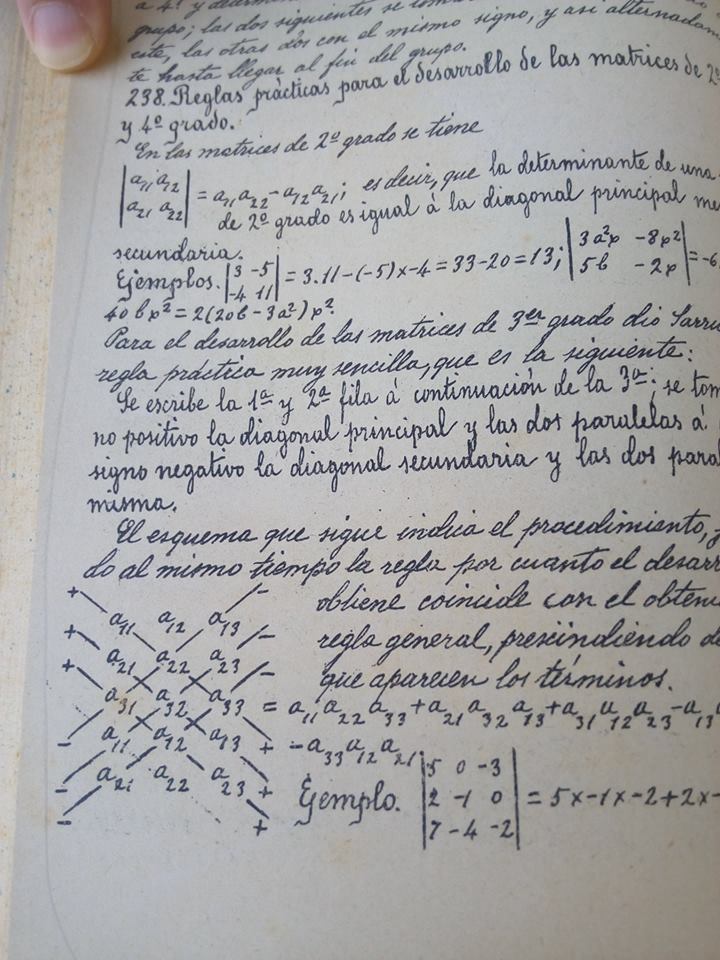 a 4!. y
grupo; las dos siguientes se
este, las otras dos con el mismo signo, y asi
te hasta llegar al fin del grupo.
238. Reglas prácticas para el desarrollo de las matrices de 2º
y 4º grado.
En las matrices de 2º grado se tiene
|a₁₁ a₁₂| = a₁₁a₂₂ - a₁₂a₂₁; es decir, que la determinante de una
|a₂₁ a₂₂| de 2º grado es igual á la diagonal principal
secundaria.
Ejemplos. |3 -5| = 3.11-(-5)x-4 = 33-20 = 13; |3a²p -8p²| = -6
|-4 11| |5b -2p|
40bp² = 2(20b-3a²)p².
Para el desarrollo de las matrices de 3er grado dio Sarru
regla práctica muy sencilla, que es la siguiente:
Se escribe la 1ª y 2ª fila á continuación de la 3ª; se tom
no positivo la diagonal principal y las dos paralelas á
signo negativo la diagonal secundaria y las dos para
misma.
El esquema que sigue indica el procedimiento,
do al mismo tiempo la regla por cuanto el desarr
obtiene coincide con el obten
regla general, prescindiendo d
que aparecen los términos.
+ -
a₁₁ a₁₂ a₁₃
+ -
a₂₁ a₂₂ a₂₃
+ -
a₃₁ a₃₂ a₃₃ = a₁₁a₂₂a₃₃+a₂₁a₃₂a₁₃+a₃₁a₁₂a₂₃-a₁₃
- a₁₁ a₁₂ a₁₃ + -a₃₃a₁₂a₂₁.
- a₂₁ a₂₂ a₂₃ +
- +
|5 0 -3|
Ejemplo. |2 -1 0| = 5x-1x-2+2x-
|7 -4 -2|